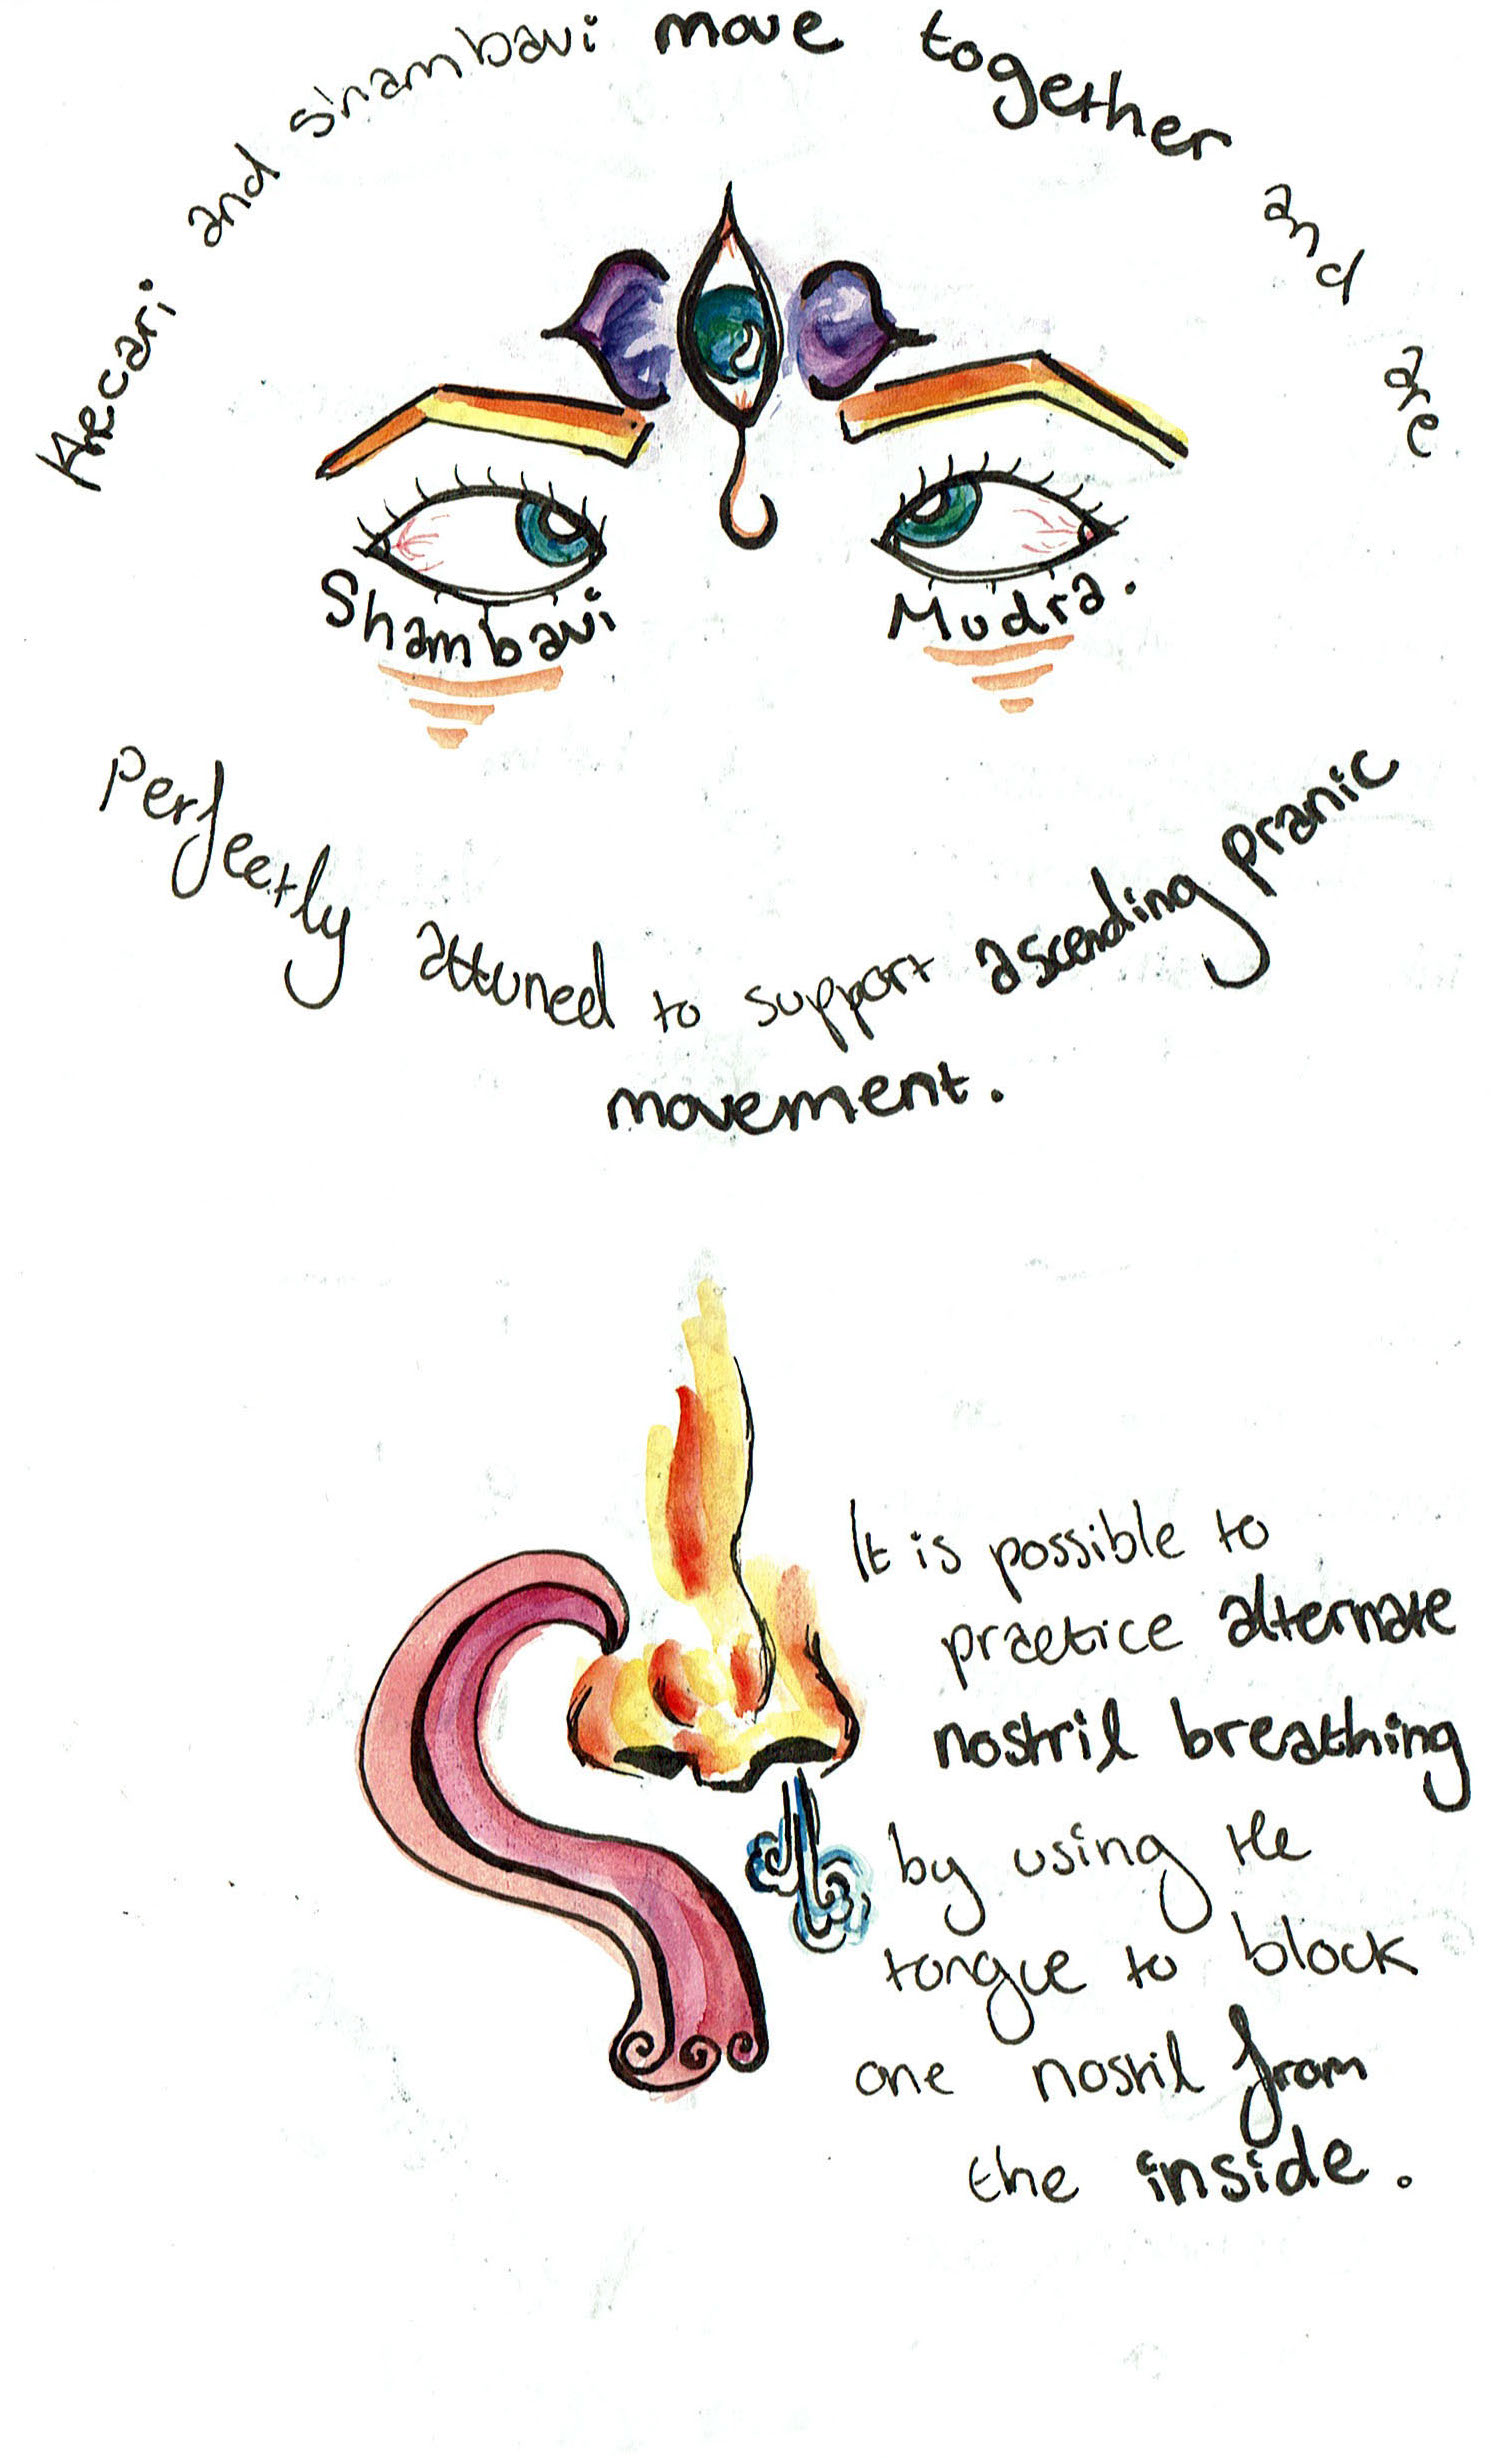 Kecari and Shambavi move together and are
Shambavi Mudra.
Perfectly attuned to support ascending pranic
movement.
It is possible to
practice alternate
nostril breathing
by using the
tongue to block
one nostril from
the inside.